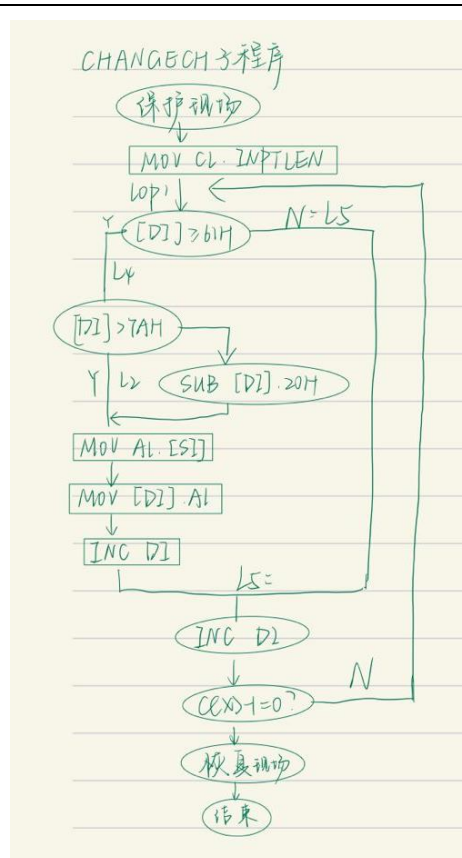 CHANGECH 子程序
保护现场
MOV CL. INPTLEN
lop1
Y
[DI]≥61H
N=L5
L4
[DI]>7AH
Y
L2
SUB [DI].20H
MOV AL.[SI]
MOV [DI].Al
INC DI
L5=
INC DI
C(X)-1=0?
N
恢复现场
结束